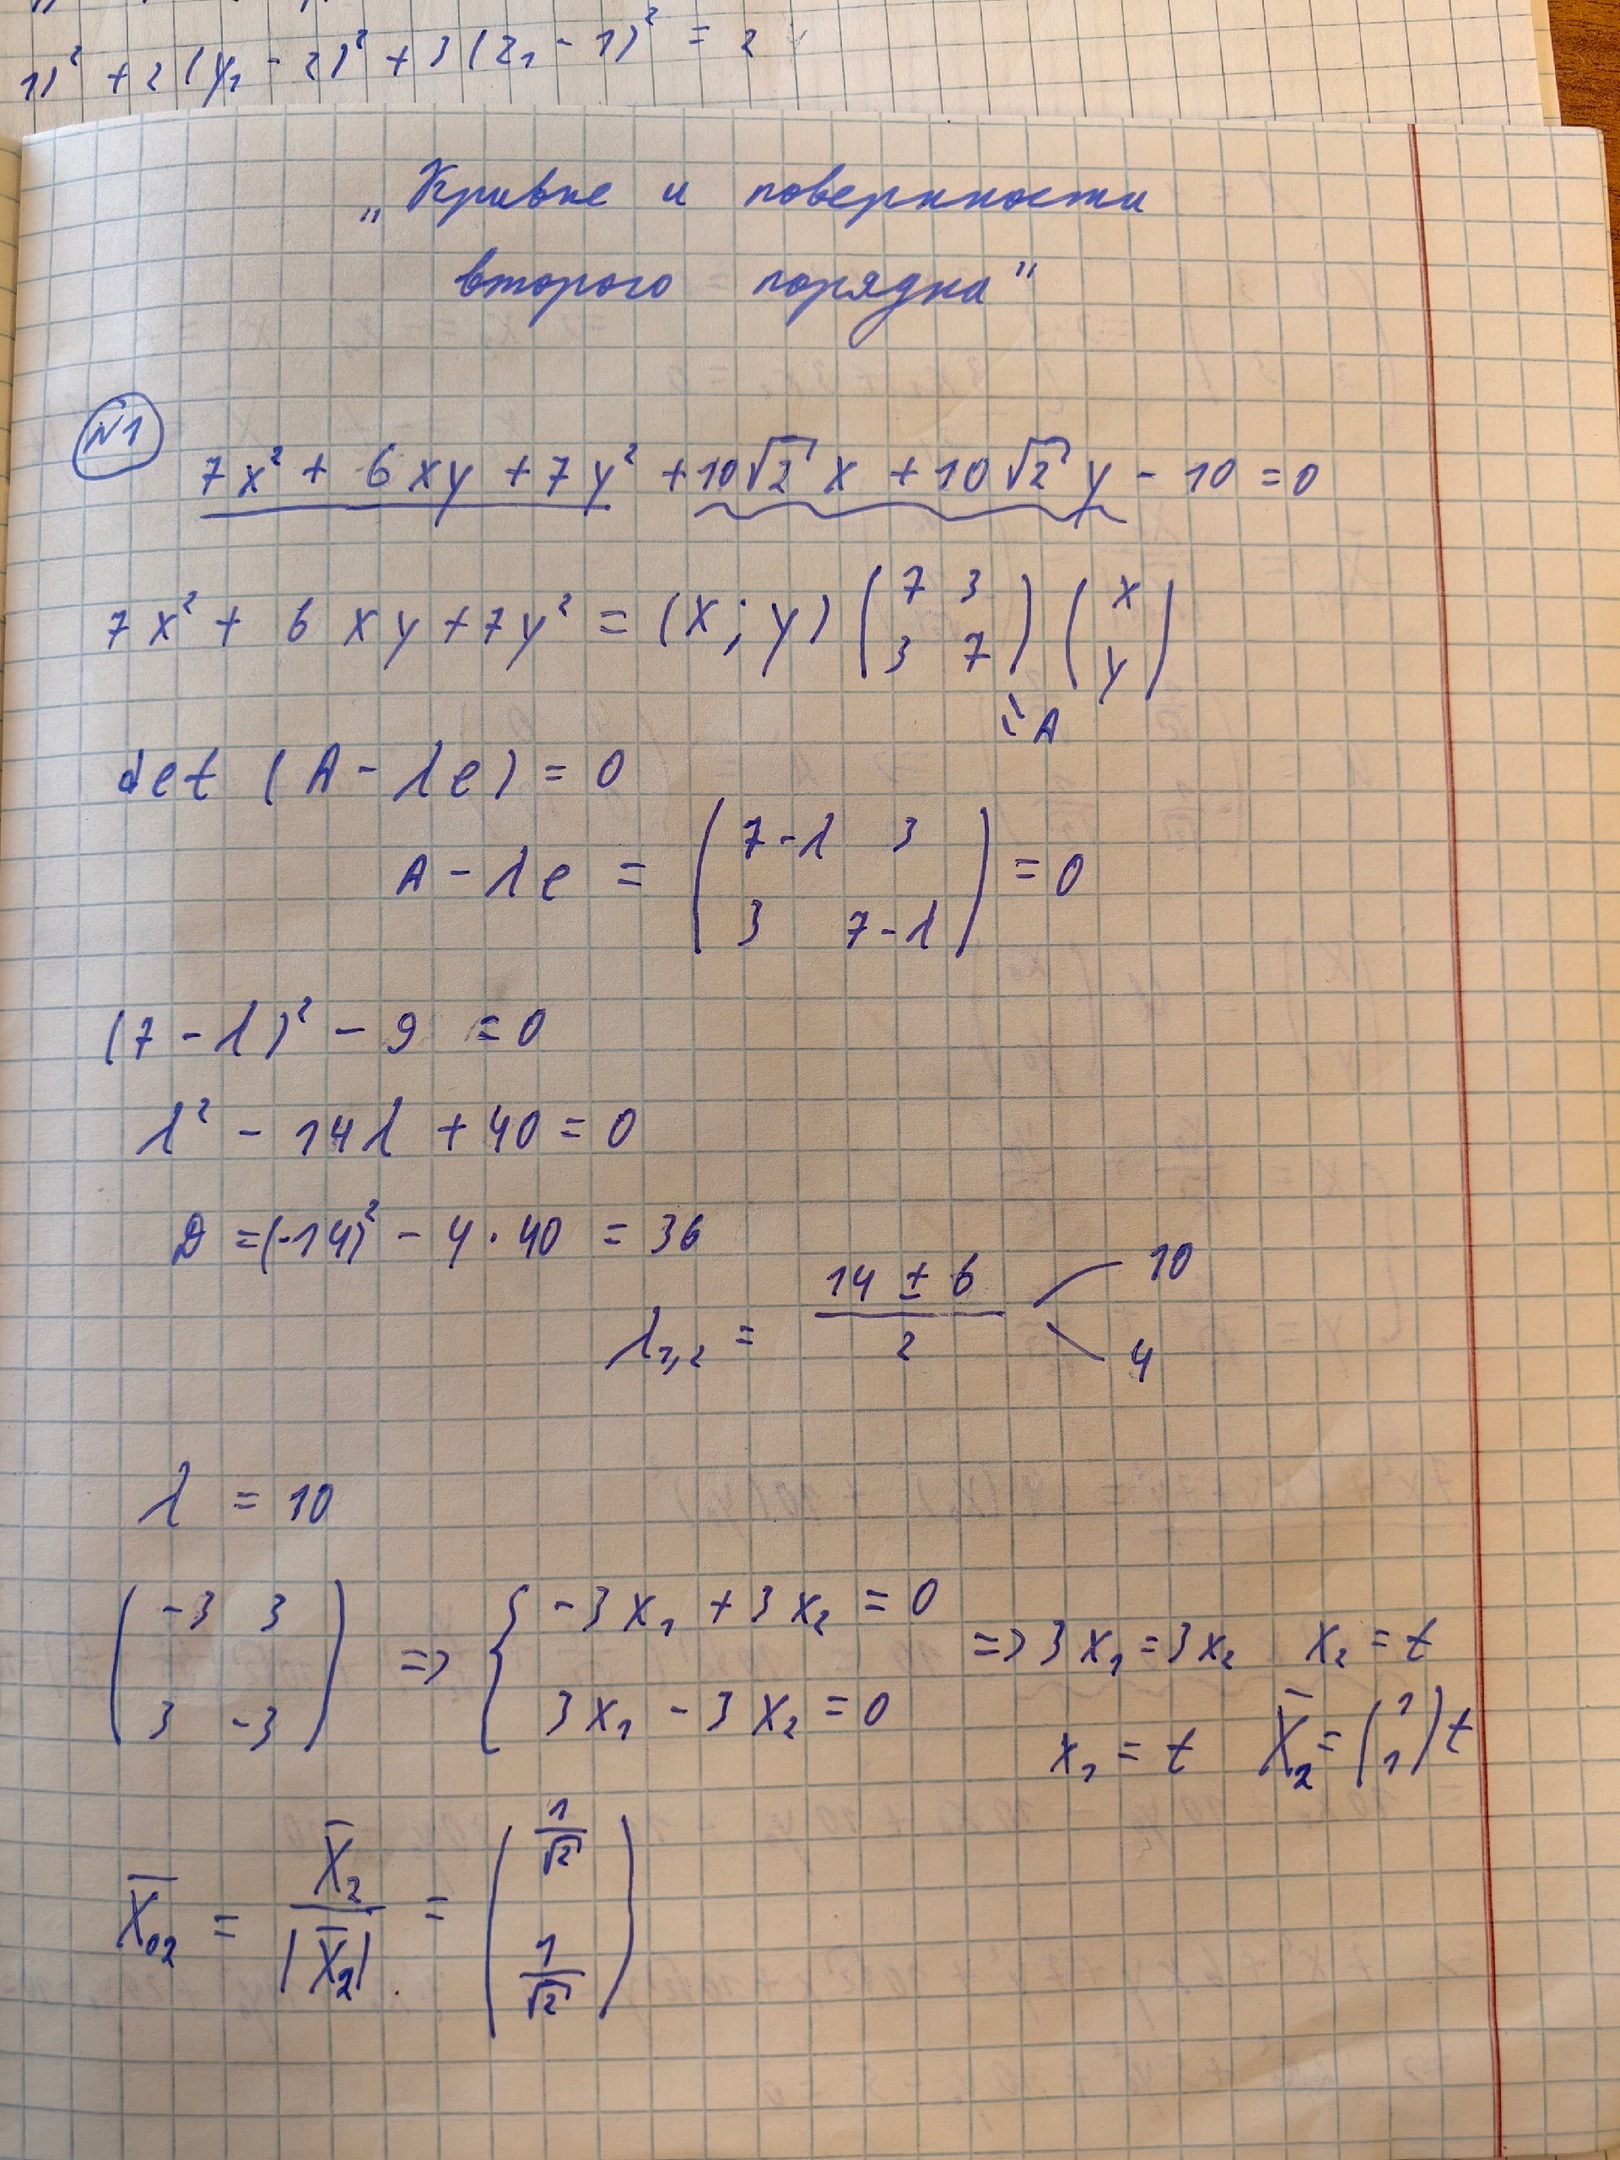 1)² + 2(y₁ - 2)² + 3(z₁ - 1)² = 2
„Кривые и поверхности
второго порядка"
№1
7x² + 6xy + 7y² + 10√2 x + 10√2 y - 10 = 0
7x² + 6xy + 7y² = (x; y) (7 3; 3 7) (x; y)
= A
det (A - λe) = 0
A - λe = (7-λ 3; 3 7-λ) = 0
(7 - λ)² - 9 = 0
λ² - 14λ + 40 = 0
D = (-14)² - 4 · 40 = 36
λ₁,₂ = (14 ± 6)/2 10 4
λ = 10
(-3 3; 3 -3) => { -3x₁ + 3x₂ = 0; 3x₁ - 3x₂ = 0 => 3x₁ = 3x₂ x₂ = t
x₁ = t X̄₂ = (1; 1) t
X̄₀₂ = X̄₂/|X̄₂| = (1/√2; 1/√2)